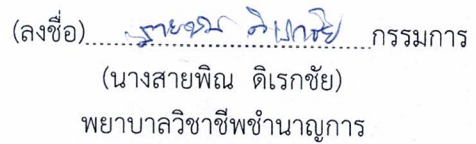 (ลงชื่อ)..........สายพิณ ดิเรกชัย..........กรรมการ
(นางสายพิณ ดิเรกชัย)
พยาบาลวิชาชีพชำนาญการ